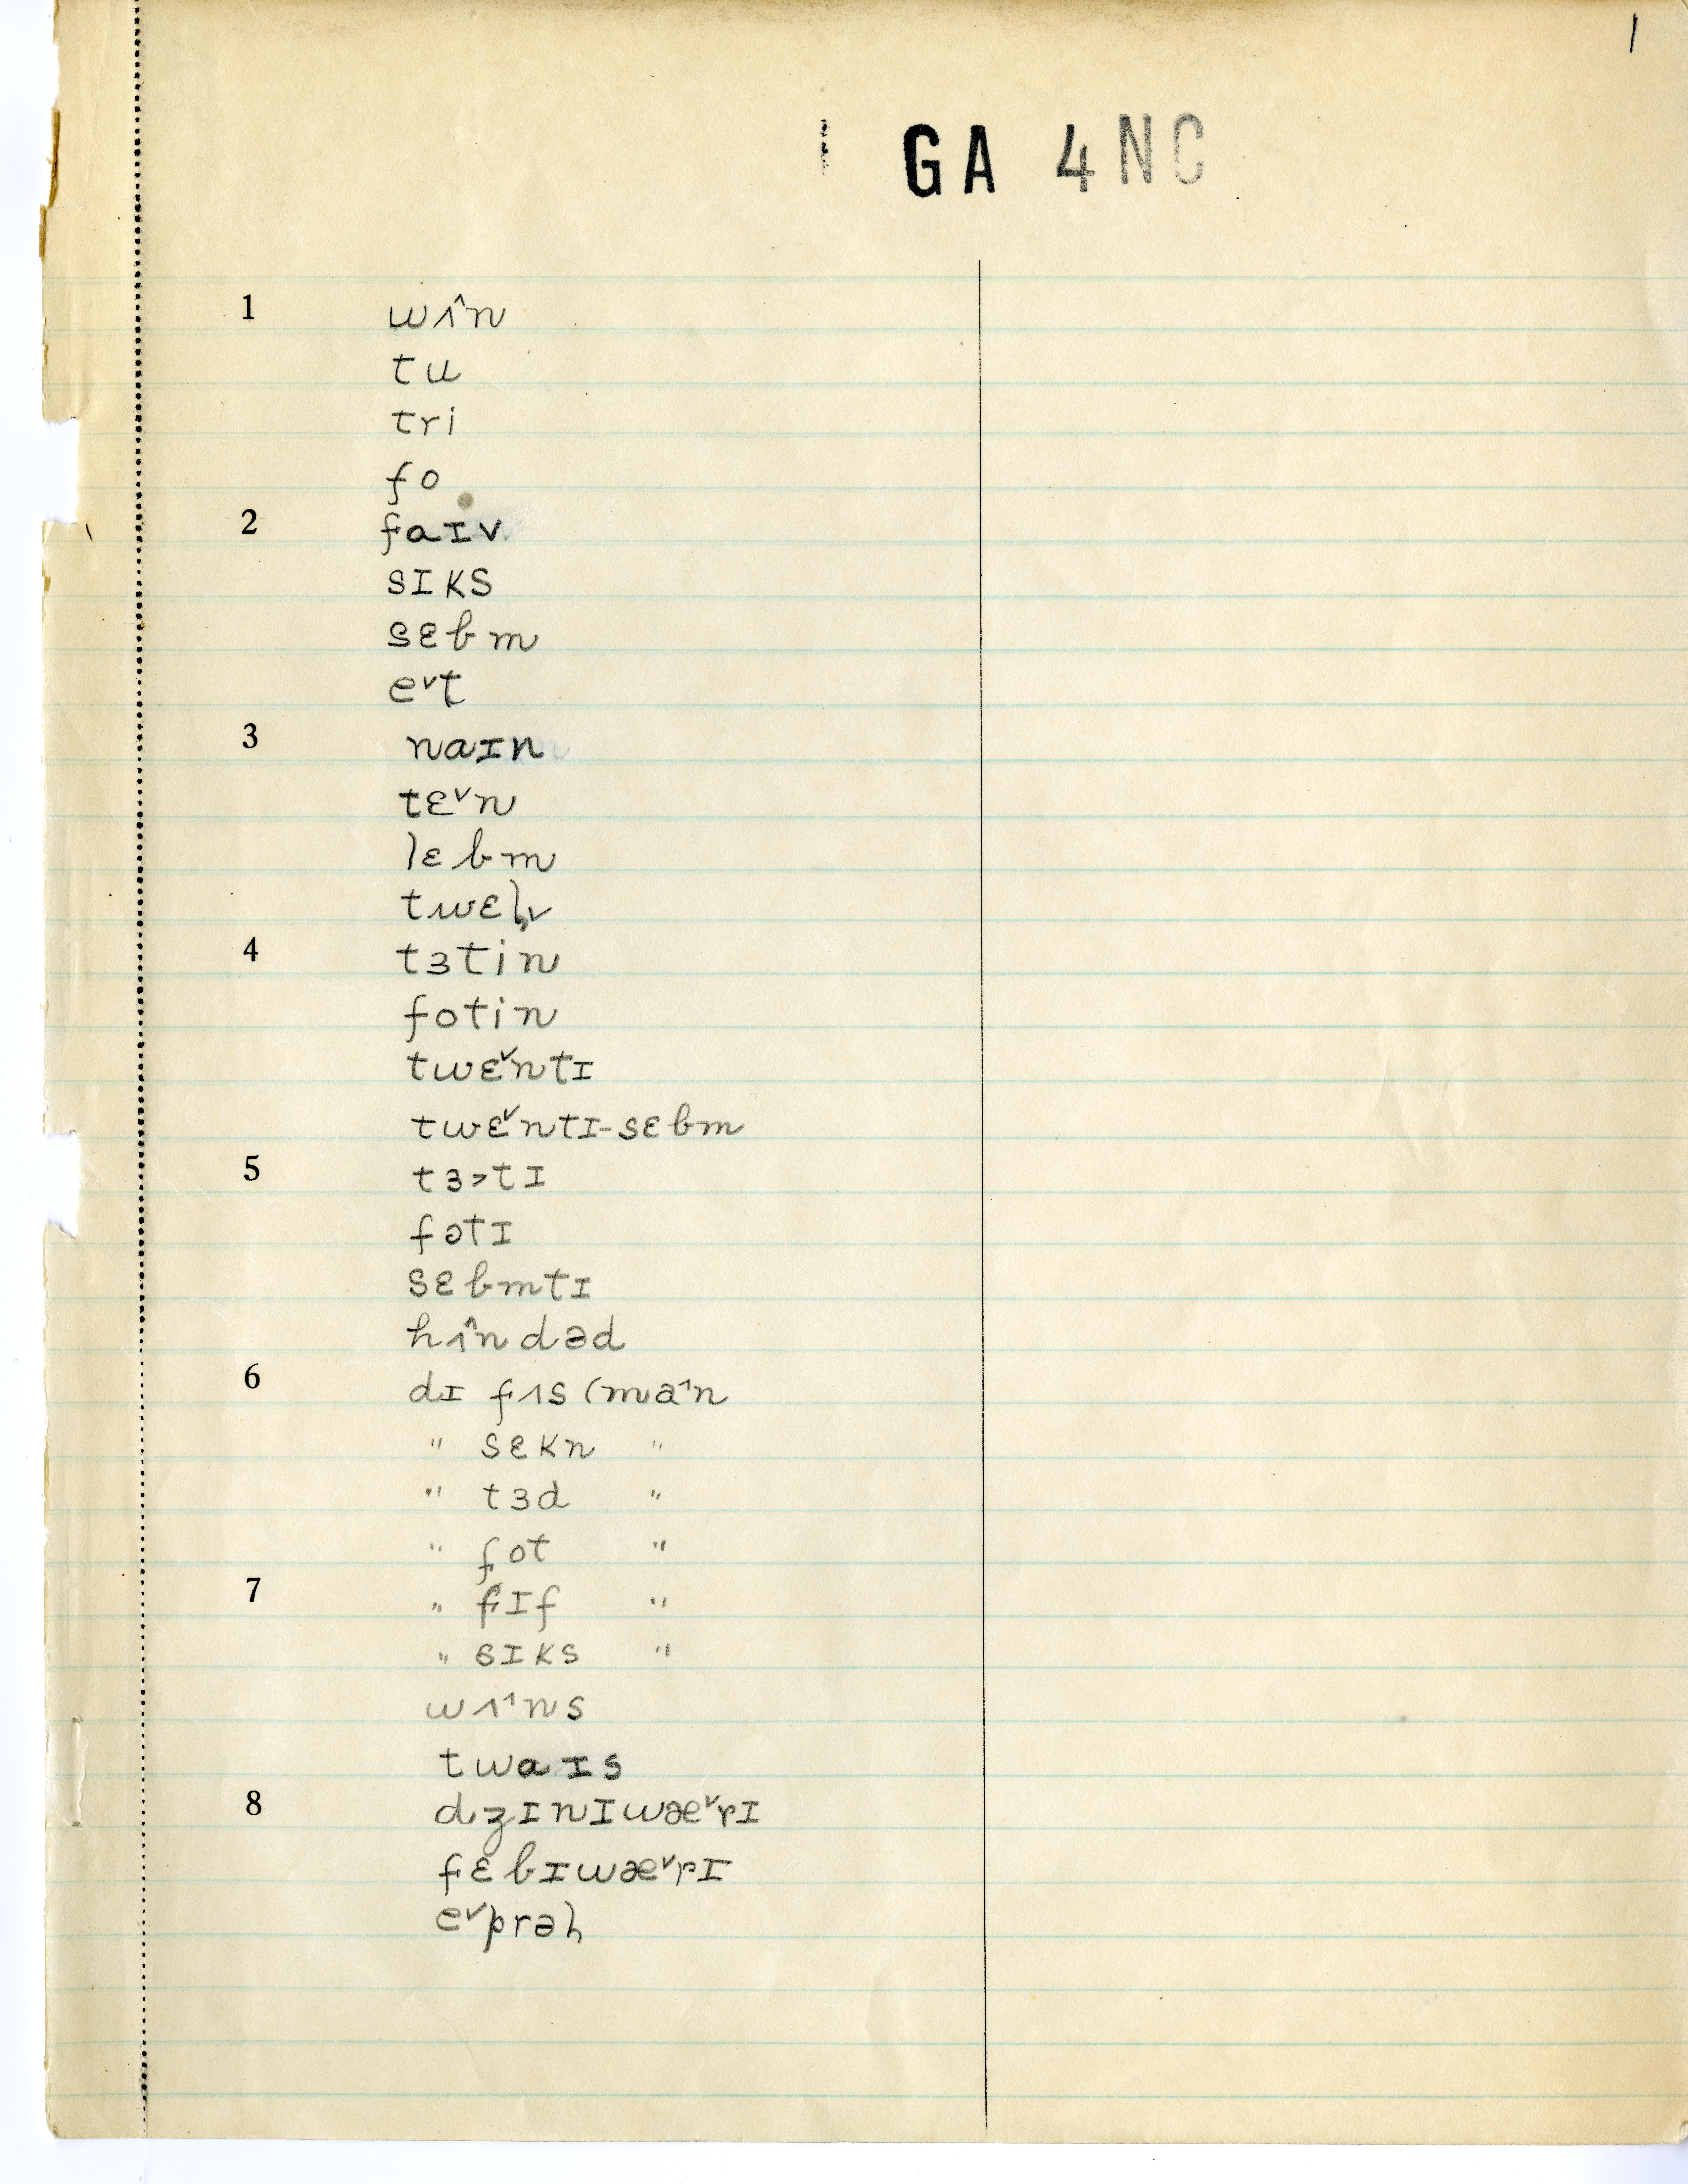 1
GA 4NC
1 wʌ̂n
tu
tri
fo
2 faɪv
sɪks
sɛbm
e˅t
3 naɪn
tɛ˅n
lɛbm
twɛl̥v
4 tɜtin
fotin
twɛ˅ntɪ
twɛ˅ntɪ-sɛbm
5 tɜ˃tɪ
fətɪ
sɛbmtɪ
hʌ̂ndəd
6 dɪ fʌs (ma˄n
" sɛkn "
" tɜd "
" fot "
7 " fɪf "
" sɪks "
wʌ˄ns
twaɪs
8 dʒɪnɪwæ˅rɪ
fɛbɪwæ˅rɪ
e˅prəl